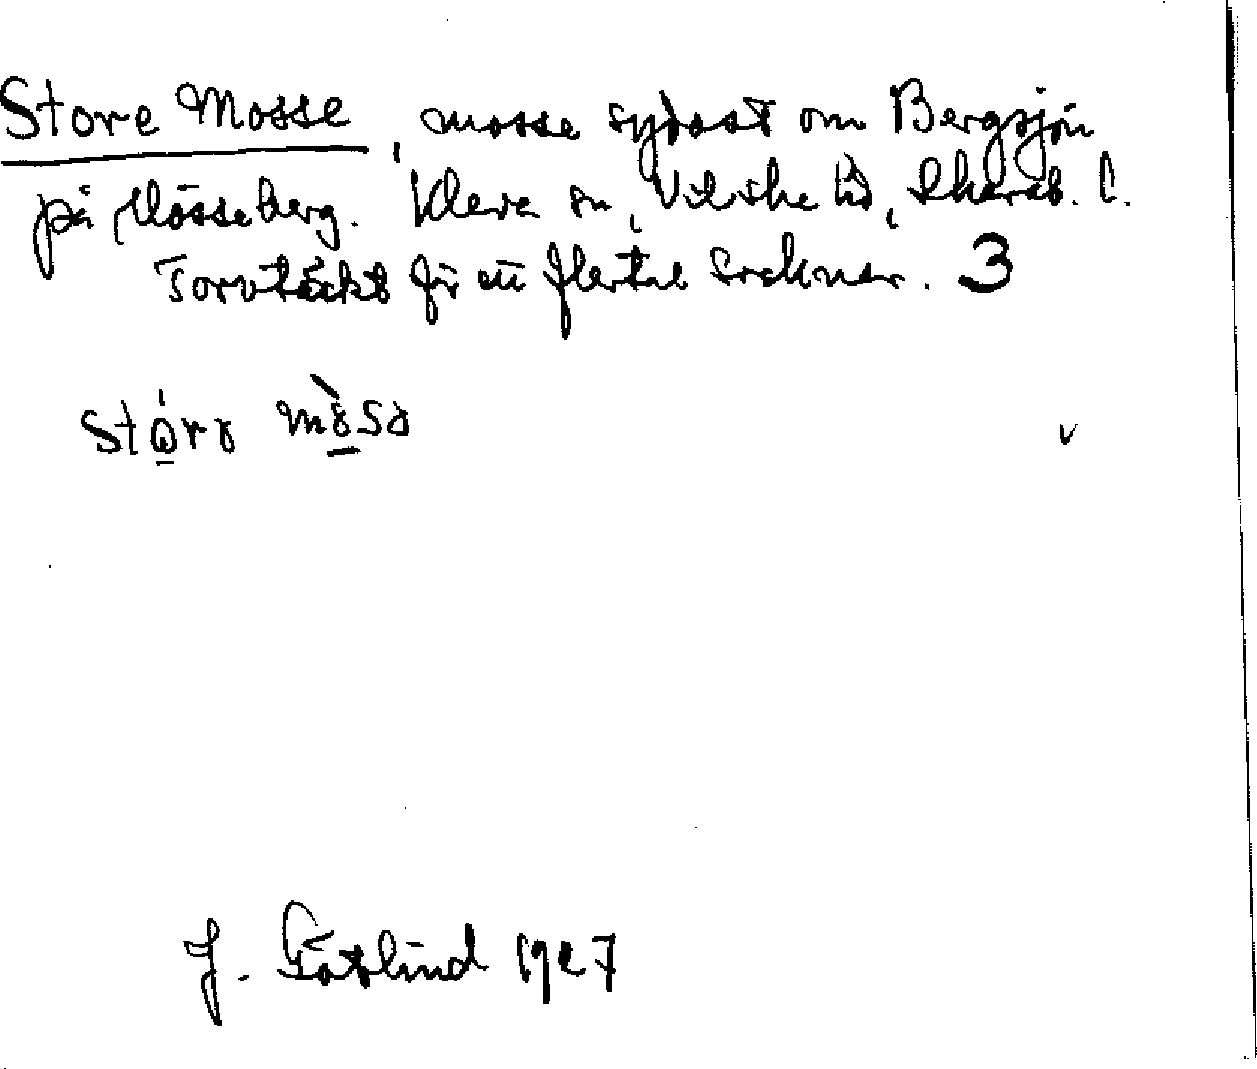 Store Mosse, mosse sydost om Bergsjön
på Mösseberg. Kleva sn, Vilske hd, Skarab. l.
Torvtäckt för ett flertal socknar. 3
v
J. Götlind 1927